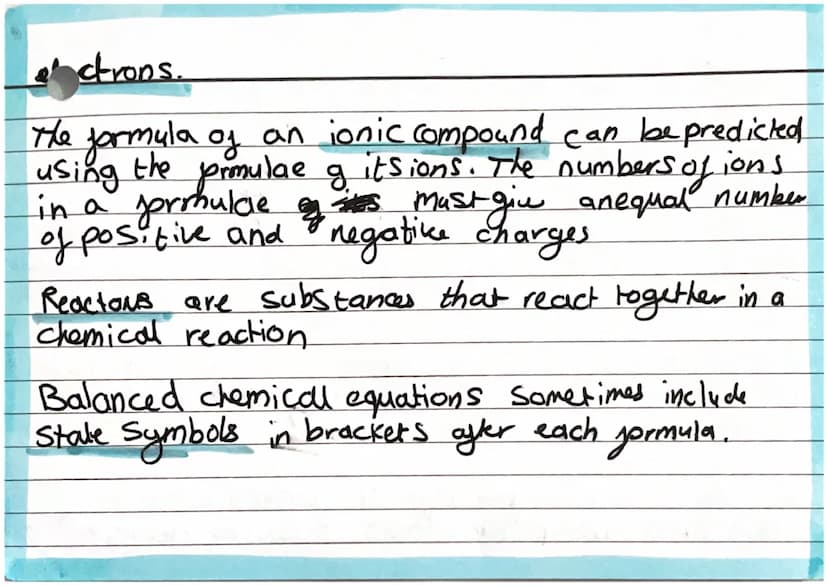 electrons.
The formula of an ionic compound can be predicted
using the formulae of its ions. The numbers of ions
in a formulae must give an equal number
of positive and negative charges
Reactons are substances that react together in a
chemical reaction
Balanced chemical equations sometimes include
State Symbols in brackets after each formula.